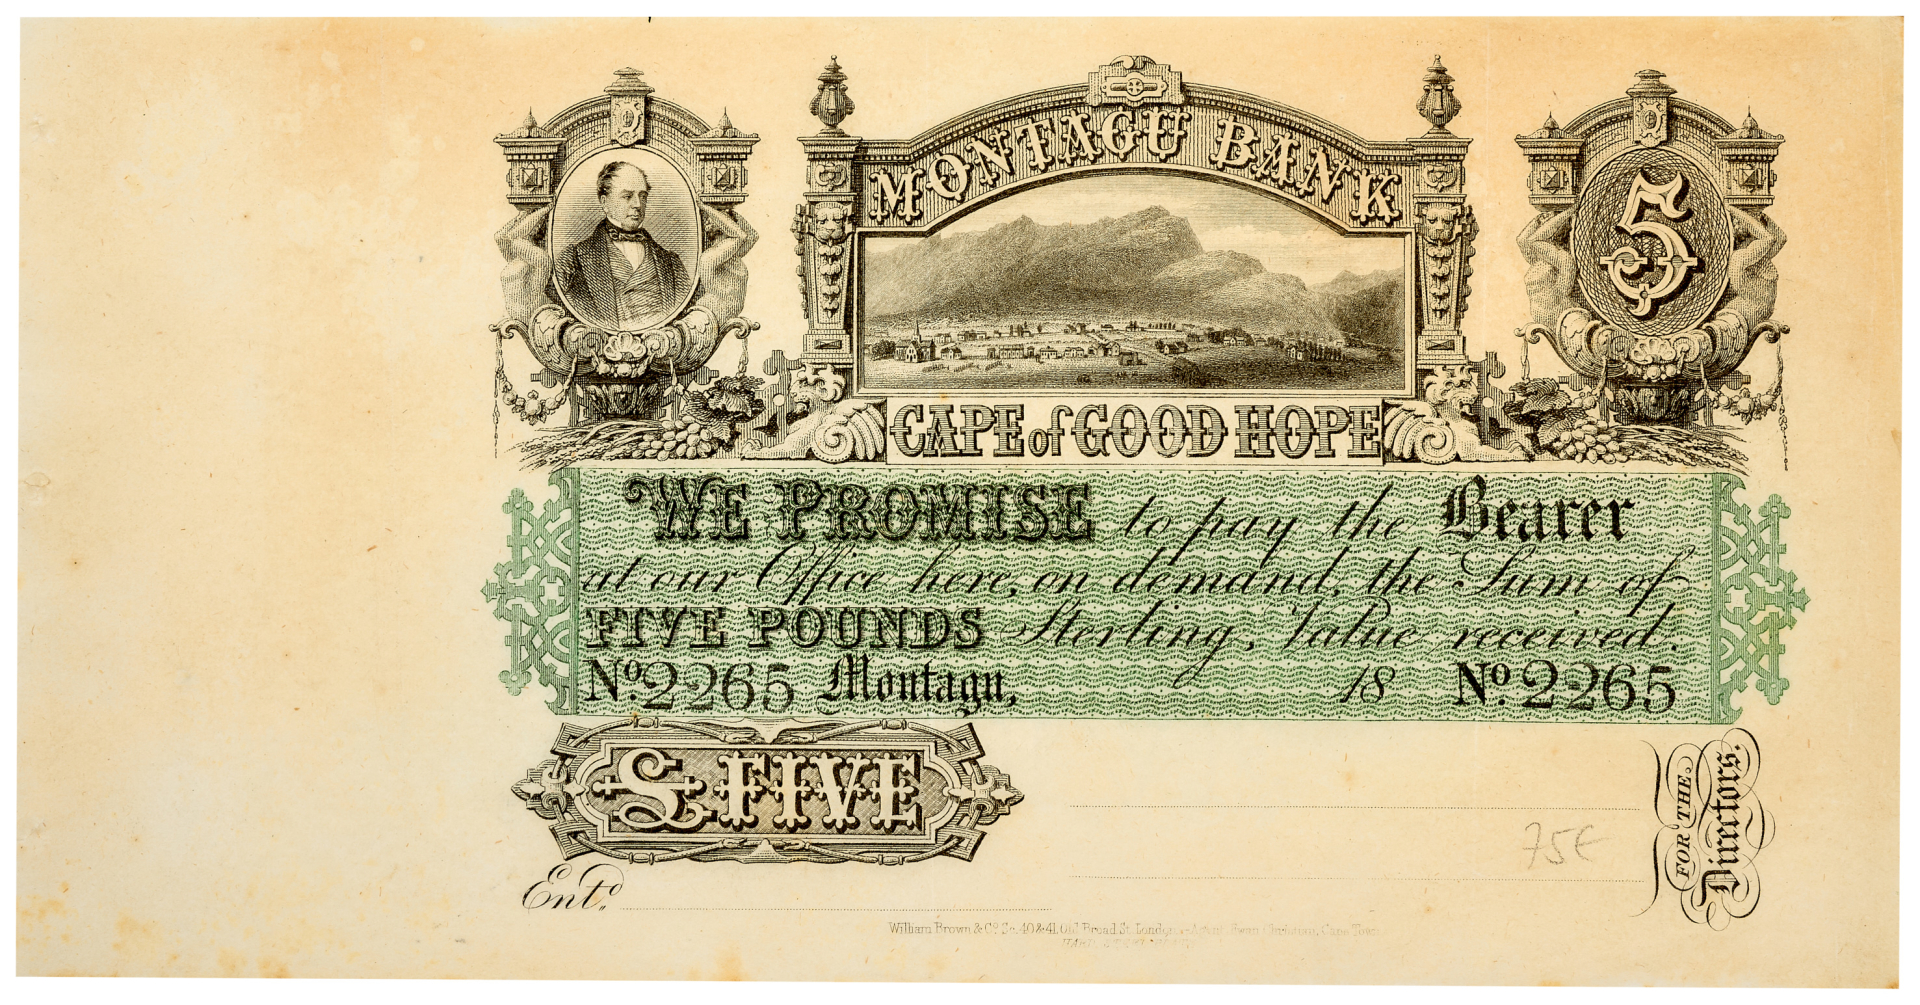 MONTAGU BANK
5
CAPE of GOOD HOPE
WE PROMISE to pay the Bearer
at our Office here, on demand, the Sum of
FIVE POUNDS Sterling, Value received.
No. 2265 Montagu, 18 No. 2265
£ FIVE
FOR THE
Directors.
75€
Entd.
William Brown & Co. Sc. 40 & 41, Old Broad St. London. Cape Town